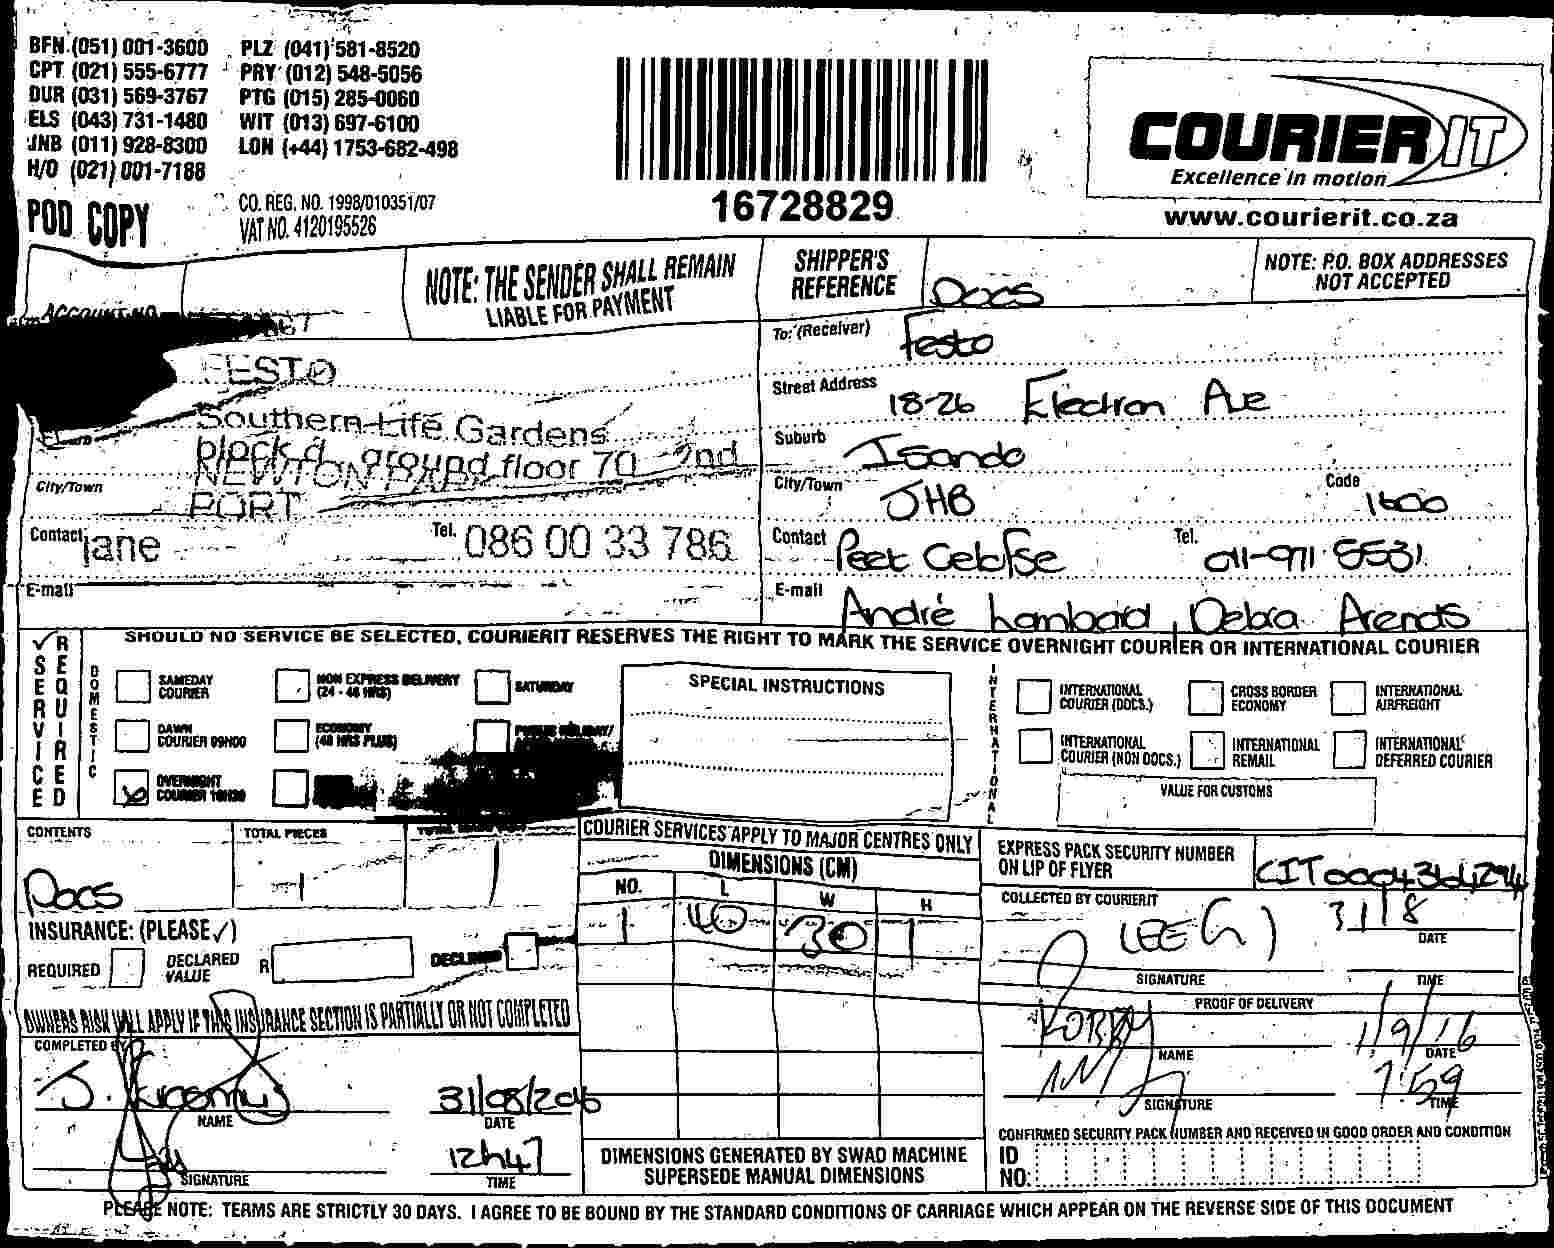 BFN (051) 001-3600 PLZ (041) 581-8520
CPT (021) 555-6777 PRY (012) 548-5056
DUR (031) 569-3767 PTG (015) 285-0060
ELS (043) 731-1480 WIT (013) 697-6100
JNB (011) 928-8300 LON (+44) 1753-682-498
H/O (021) 001-7188
POD COPY
CO. REG. NO. 1998/010351/07
VAT NO. 4120195526
16728829
COURIER IT
Excellence in motion
www.courierit.co.za
ACCOUNT NO.
NOTE: THE SENDER SHALL REMAIN
LIABLE FOR PAYMENT
SHIPPER'S
REFERENCE
Docs
NOTE: P.O. BOX ADDRESSES
NOT ACCEPTED
FESTO
Southern Life Gardens
block d ground floor 70 2nd
NEWTON PARK
PORT
City/Town
Contact jane Tel. 086 00 33 786
E-mail
To: (Receiver) Festo
Street Address 18-26 Electron Ave
Suburb Isando
City/Town JHB Code 1600
Contact Peet Tel. 011-971 5531
E-mail André Lombard, Debra Arends
SERVICE REQUIRED
SHOULD NO SERVICE BE SELECTED, COURIERIT RESERVES THE RIGHT TO MARK THE SERVICE OVERNIGHT COURIER OR INTERNATIONAL COURIER
DOMESTIC
SAMEDAY
COURIER
NON EXPRESS DELIVERY
(24 - 48 HRS)
SATURDAY
DAWN
COURIER 09H00
ECONOMY
(48 HRS PLUS)
PUBLIC HOLIDAY/
OVERNIGHT
COURIER 10H30
SPECIAL INSTRUCTIONS
INTERNATIONAL
INTERNATIONAL
COURIER (DOCS.)
CROSS BORDER
ECONOMY
INTERNATIONAL
AIRFREIGHT
INTERNATIONAL
COURIER (NON DOCS.)
INTERNATIONAL
REMAIL
INTERNATIONAL
DEFERRED COURIER
VALUE FOR CUSTOMS
CONTENTS
Docs
TOTAL PIECES
1
1
COURIER SERVICES APPLY TO MAJOR CENTRES ONLY
DIMENSIONS (CM)
NO. L W H
1 40 30 1
DIMENSIONS GENERATED BY SWAD MACHINE
SUPERSEDE MANUAL DIMENSIONS
INSURANCE: (PLEASE ✓)
REQUIRED
DECLARED
VALUE
R
DECLINED
OWNERS RISK WILL APPLY IF THIS INSURANCE SECTION IS PARTIALLY OR NOT COMPLETED
COMPLETED BY
J.
NAME
31/08/2016
DATE
SIGNATURE
12h47
TIME
EXPRESS PACK SECURITY NUMBER
ON LIP OF FLYER
COLLECTED BY COURIERIT
LEE(G) 31/8
DATE
SIGNATURE
TIME
PROOF OF DELIVERY
1/9/16
NAME
DATE
7:59
SIGNATURE
TIME
CONFIRMED SECURITY PACK NUMBER AND RECEIVED IN GOOD ORDER AND CONDITION
ID
NO:
PLEASE NOTE: TERMS ARE STRICTLY 30 DAYS. I AGREE TO BE BOUND BY THE STANDARD CONDITIONS OF CARRIAGE WHICH APPEAR ON THE REVERSE SIDE OF THIS DOCUMENT